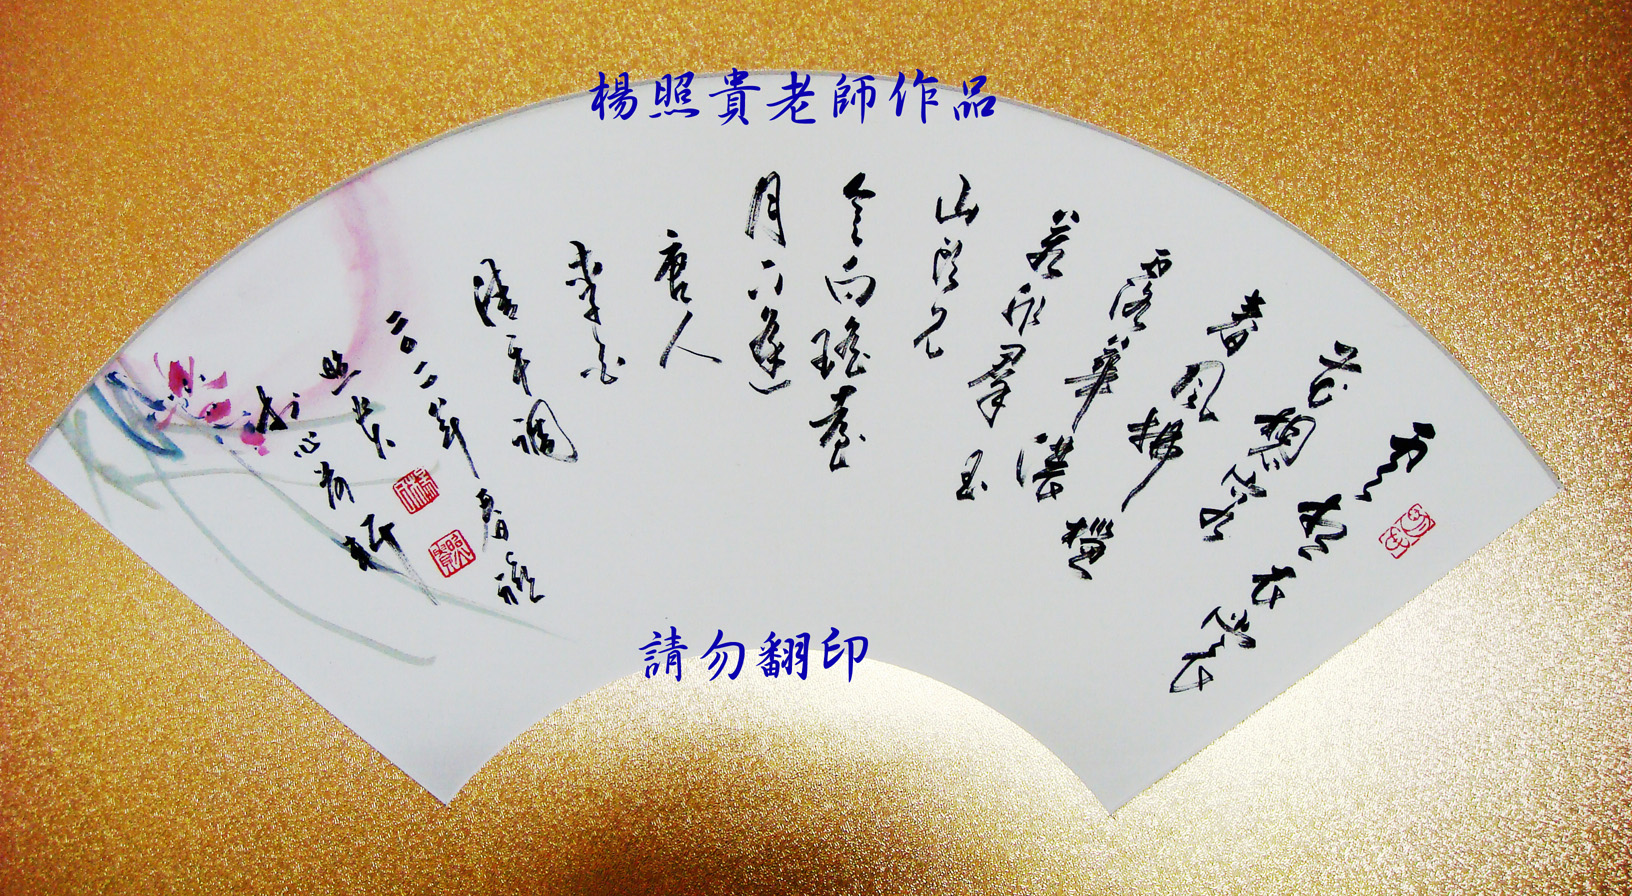 楊照貴老師作品
雲想衣裳
花想容
春風拂檻
露華濃
若非羣玉
山頭見
会向瑤臺
月下逢
唐人
李白
清平調
二〇一二年春
照貴
請勿翻印